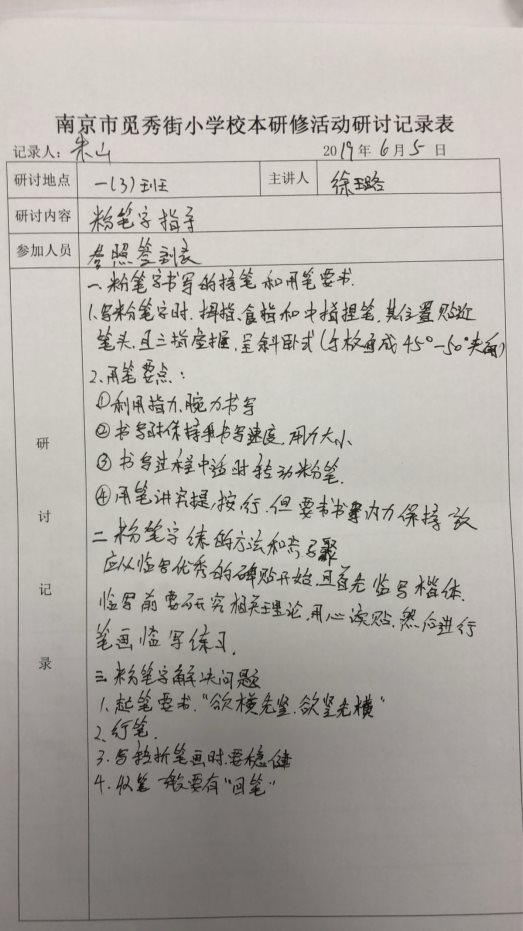 南京市觅秀街小学校本研修活动研讨记录表
记录人：朱山 2019年6月5日
研讨地点 一(3)班 主讲人 徐璐
研讨内容 粉笔字指导
参加人员 参照签到表
研讨记录
一、粉笔字书写的持笔和用笔要求.
1.写粉笔字时，拇指、食指和中指捏笔，其位置贴近
笔头，且三指虚握，呈斜卧式(与板面成45°-50°夹角)
2.用笔要点：
①利用指力、腕力书写
②书写时保持书写速度、用力大小
③书写过程中适时转动粉笔.
④用笔讲究提、按、行.但要书内力保持
二、粉笔字练的方法和
应从临写优秀的碑贴开始，且首先临写楷体.
临写前要研究相关理论，用心读贴，然后进行
笔画临写练习.
三、粉笔字解决问题
1.起笔要求“欲横先竖，欲竖先横”
2.行笔.
3.写转折笔画时要稳健
4.收笔一般要有“回笔”